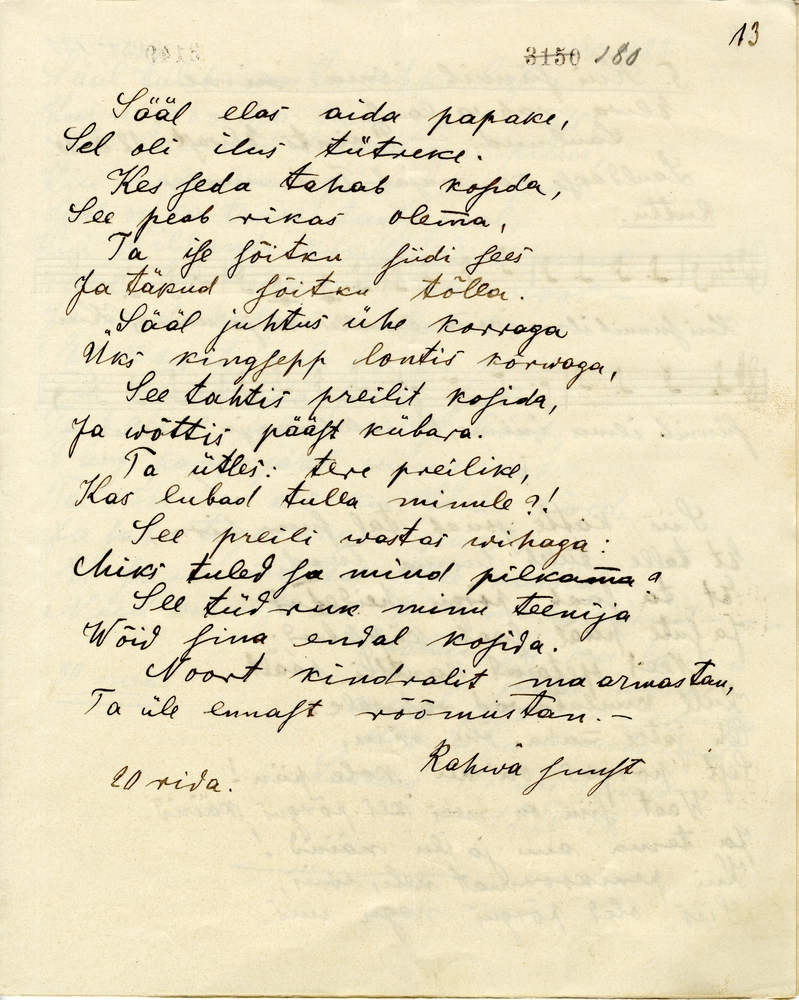 13
3150 180
Sääl elas aida papake,
Sel oli ilus tütreke.
Kes seda tahab kosida,
See peab rikas olema,
Ta ise sõitku siidi sees
Ja täkud sõitku tõlla.
Sääl juhtus ühe korraga
Üks kingsepp lontis kõrwaga,
See tahtis preilit kosida,
Ja wõttis pääst kübara.
Ta ütles: tere preilike,
Kas lubad tulla minule?!
See preili wastas wihaga:
Miks tuled sa mind pilkama?
See tüdruk minu teenija
Wõid sina endal kosida.
Noort kindralit ma armastan,
Ta üle ennast rõõmustan.—
Rahwa suust
20 rida.